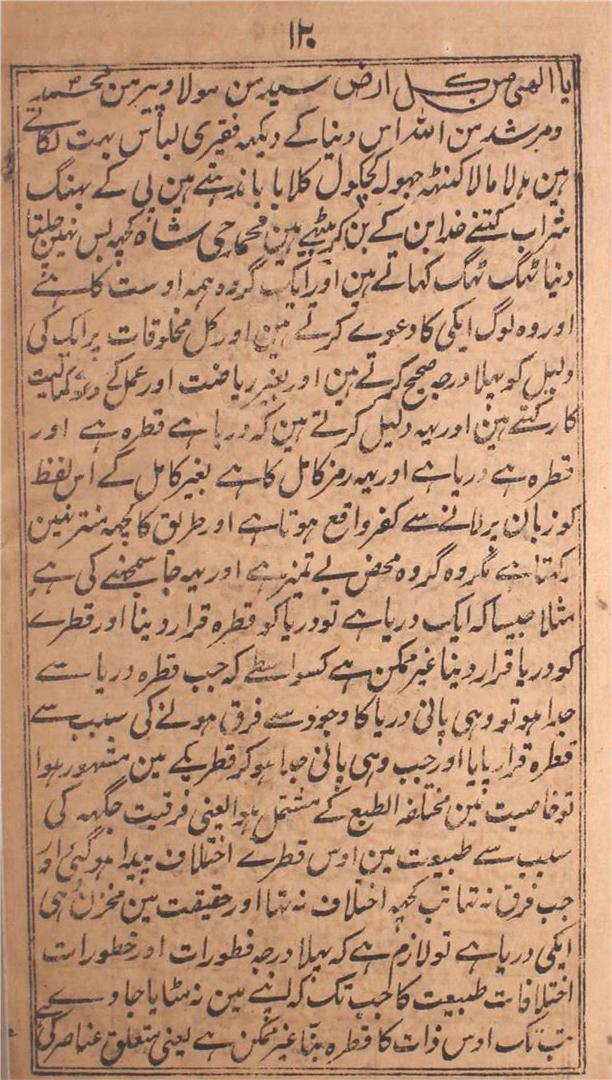 ۱۲۰
یا الٰھی من کل ارض سیدہن مولا و پیرمن محمدؐ
و مرشد من اللہ اس دنیا کے دیکھہ فقیری لباس بہت لگاتے
ہین مالا کنٹھہ جھول کچکول کلابا باندہتے ہین پی کے بھنگ
شراب کتنے خدا بن کے بن کر بیٹھے ہین محماجی شاہ کچہہ بس نہین چلتا
دنیا ٹھگ ٹھگ کہاتے ہین اور ایک گروہ ہمہ اوست کا ہے
اور وہ لوگ ایکی کا دعوے کرتے ہین اور کل مخلوقات پر ایک کی
دلیل کو پہلا درجہ صحیح کرتے ہین اور بغیر ریاضت اور عمل کے
کا رکہتے ہین اور یہہ دلیل کرتے ہین کہ دریا ہے قطرہ ہے اور
قطرہ ہے دریا ہے اور یہہ رمز کامل کا ہے بغیر کامل کے اس لفظ
کو زبان پر لانے سے کفر واقع ہوتا ہے اور طریق کا کچہہ منتر نہین
رکہتا ہے مگر وہ گروہ محض بے تمیز ہے اور یہہ جا سمجہنے کی ہے
مثلا جیسا کہ ایک دریا ہے تو دریا کو قطرہ قرار دینا اور قطرے
کو دریا قرار دینا غیر ممکن ہے کسواسطے کہ جب قطرہ دریا سے
جدا ہو تو وہی پانی دریا کا وجود سے فرق ہونے کی سبب سے
قطرہ قرار پایا اور جب وہی پانی جدا ہو کر قطریکے مین مشہور ہوا
تو خاصیت مین مختلفہ الطبع کے مشتمل ہوا یعنی فرقیت جگہہ کی
سبب سے طبیعت مین اوس قطرے اختلاف پیدا ہوگئی اور
جب فرق نہ تہا تب کچہہ اختلاف نہ تہا اور حقیقت مین مخزن ہی
ایکی دریا ہے تو لازم ہے کہ پہلا درجہ فطورات اور خطورات
اختلافات طبیعت کا جب تک کہ اپنے مین نہ مٹایا جاوے
تب تک اوس ذات کا قطرہ بننا غیر ممکن ہے یعنی متعلق عناصر کی